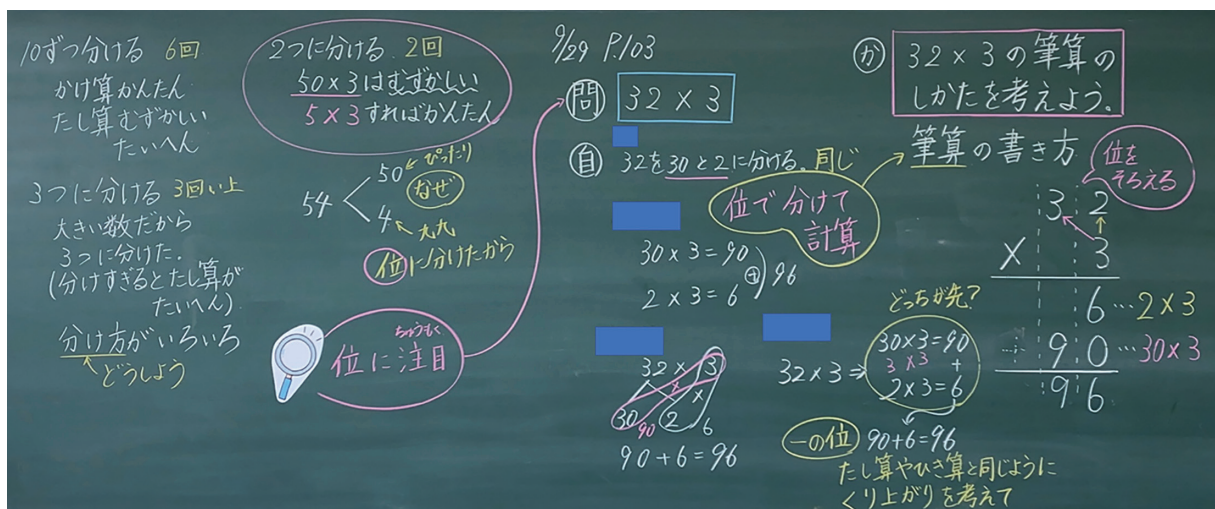 10ずつ分ける 6回
かけ算かんたん
たし算むずかしい
たいへん
3つに分ける 3回い上
大きい数だから
3つに分けた.
(分けすぎるとたし算が
たいへん).
分け方がいろいろ
どうしよう
2つに分ける. 2回
50×3はむずかしい
5×3すればかんたん
54
50 ぴったり
なぜ
4 九九
位に分けたから
ちゅうもく
位に注目
9/29 P.103
問 32×3
自 32を30と2に分ける. 同じ
位で分けて
計算
30×3=90
2×3=6
+ 96
32×3
×
×
30 90 2 6
90+6=96
32×3⇒
どっちが先?
30×3=90
3×3 +
2×3=6
一の位 90+6=96
たし算やひき算と同じように
くり上がりを考えて
か 32×3の筆算の
しかたを考えよう.
筆算の書き方
位を
そろえる
3 2
× 3
6…2×3
+ 90…30×3
96